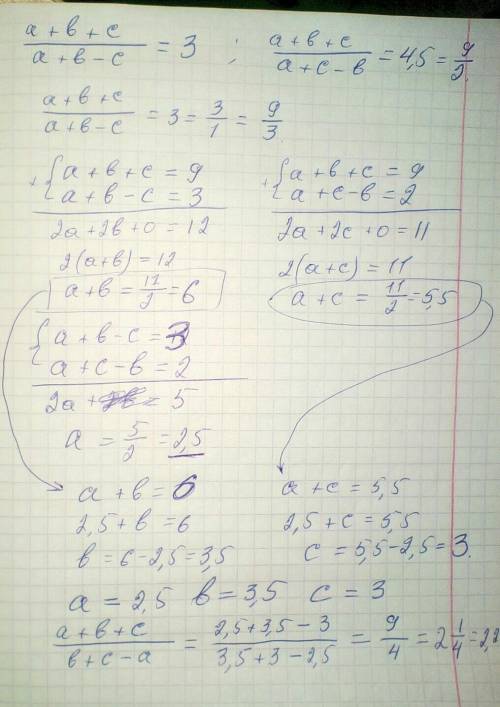 (a+b+c)/(a+b−c) = 3 ; (a+b+c)/(a+c−b) = 4,5 = 9/2
(a+b+c)/(a+b−c) = 3 = 3/1 = 9/3
+{ a+b+c = 9
a+b−c = 3
2a+2b+0 = 12
2(a+b) = 12
a+b = 12/2 = 6
+{ a+b+c = 9
a+c−b = 2
2a+2c+0 = 11
2(a+c) = 11
a+c = 11/2 = 5,5
{ a+b−c = 3
a+c−b = 2
2a = 5
a = 5/2 = 2,5
a+b = 6
2,5+b = 6
b = 6−2,5 = 3,5
a+c = 5,5
2,5+c = 5,5
c = 5,5−2,5 = 3.
a = 2,5 b = 3,5 c = 3
(a+b+c)/(b+c−a) = (2,5+3,5−3)/(3,5+3−2,5) = 9/4 = 2 1/4 = 2,2